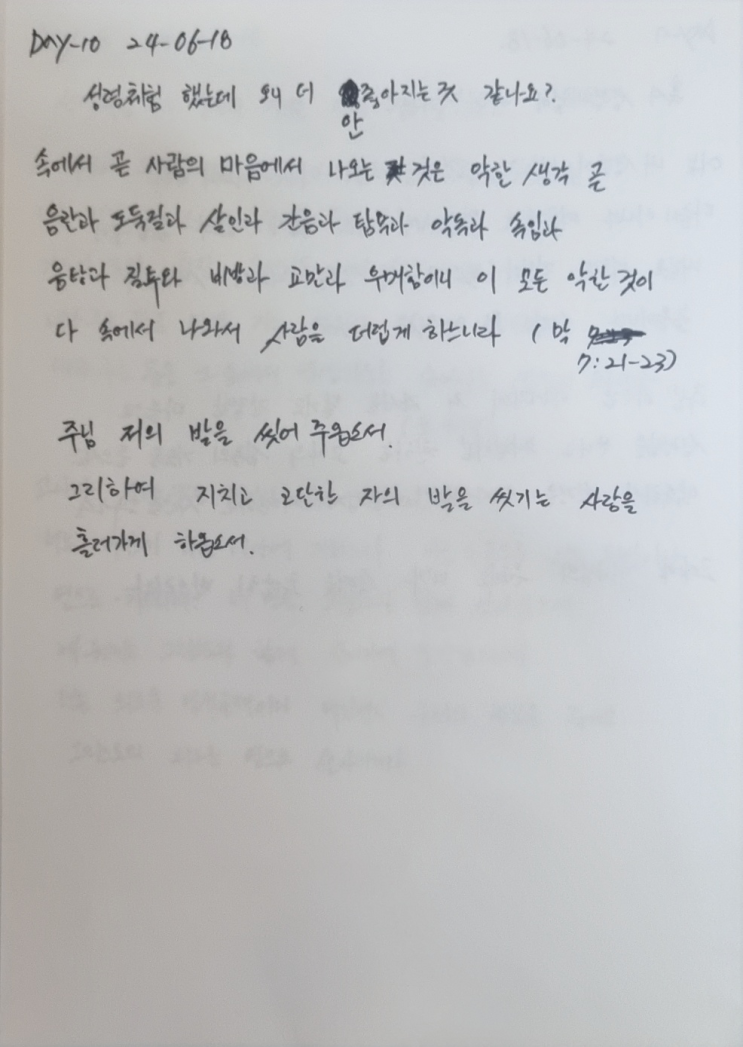 DAY-10 24-06-18
성령체험 했는데 왜 더 안 좋아지는 것 같나요?
속에서 곧 사람의 마음에서 나오는 것은 악한 생각 곧
음란과 도둑질과 살인과 간음과 탐욕과 악독과 속임과
음탕과 질투와 비방과 교만과 우매함이니 이 모든 악한 것이
다 속에서 나와서 사람을 더럽게 하느니라 (막
7:21-23)
주님 저의 발을 씻어 주옵소서.
그리하여 지치고 고단한 자의 발을 씻기는 사랑을
흘러가게 하옵소서.